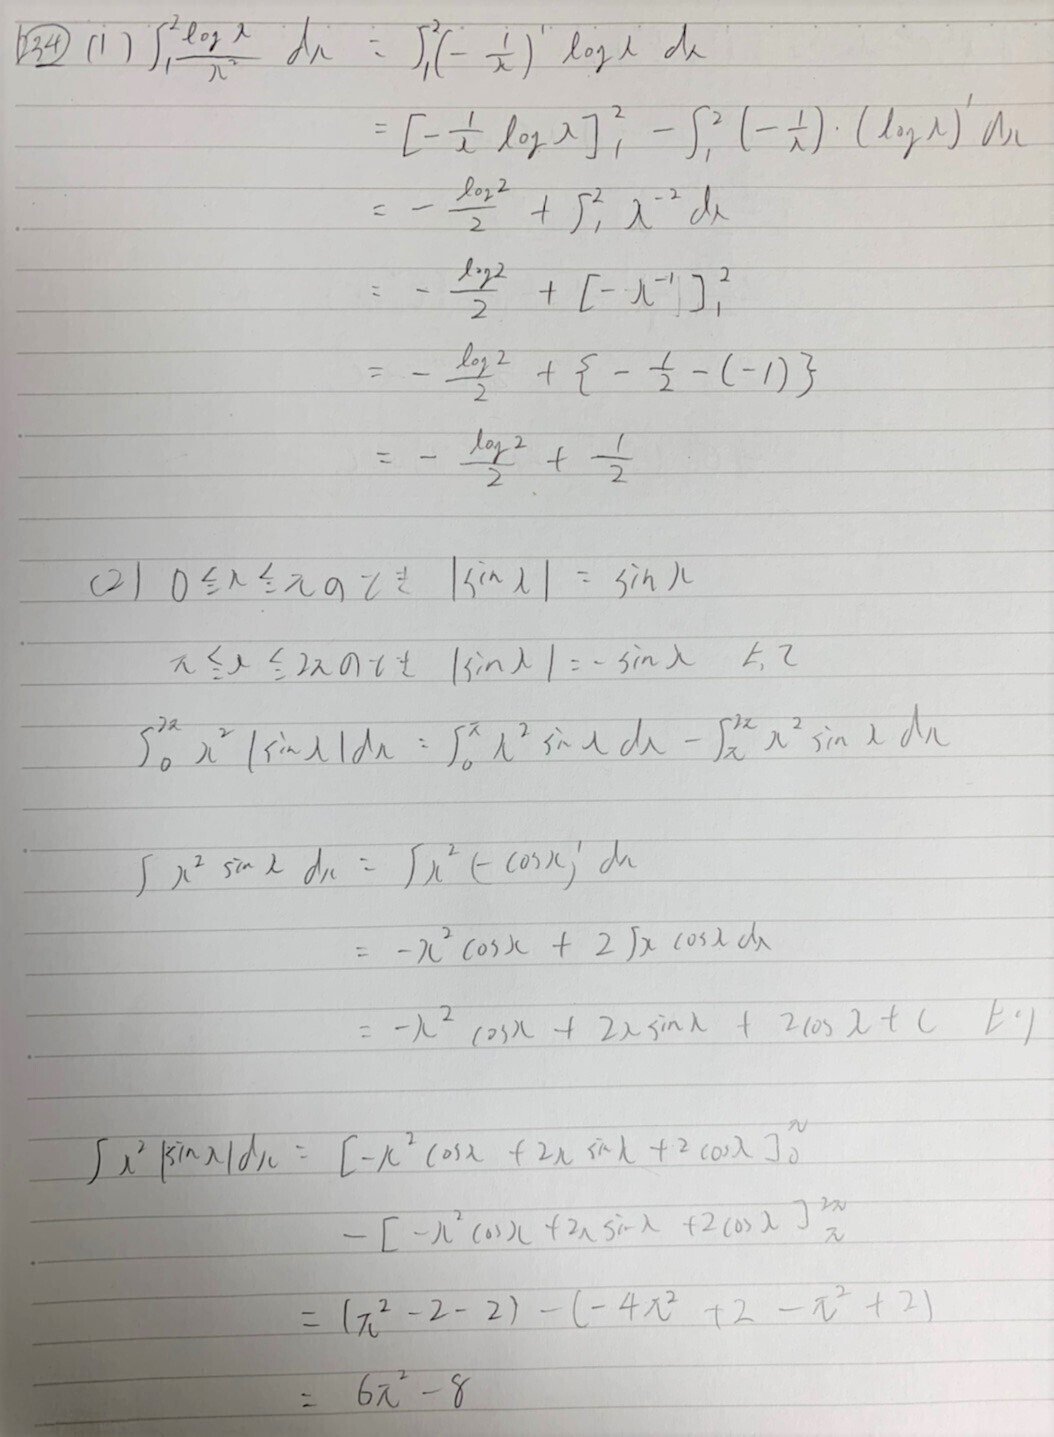 234 (1) ∫₁² log x / x² dx = ∫₁² (- 1/x)' log x dx
= [- 1/x log x]₁² - ∫₁² (- 1/x)・(log x)' dx
= - log2/2 + ∫₁² x⁻² dx
= - log2/2 + [- x⁻¹]₁²
= - log2/2 + {- 1/2 - (-1)}
= - log2/2 + 1/2
(2) 0 ≦ x ≦ π のとき |sin x| = sin x
π ≦ x ≦ 2π のとき |sin x| = - sin x よって
∫₀^2π x² |sin x| dx = ∫₀^π x² sin x dx - ∫π^2π x² sin x dx
∫ x² sin x dx = ∫ x² (- cos x)' dx
= - x² cos x + 2 ∫ x cos x dx
= - x² cos x + 2x sin x + 2 cos x + C より
∫ x² |sin x| dx = [- x² cos x + 2x sin x + 2 cos x]₀^π
- [- x² cos x + 2x sin x + 2 cos x]π^2π
= (π² - 2 - 2) - (- 4π² + 2 - π² + 2)
= 6π² - 8